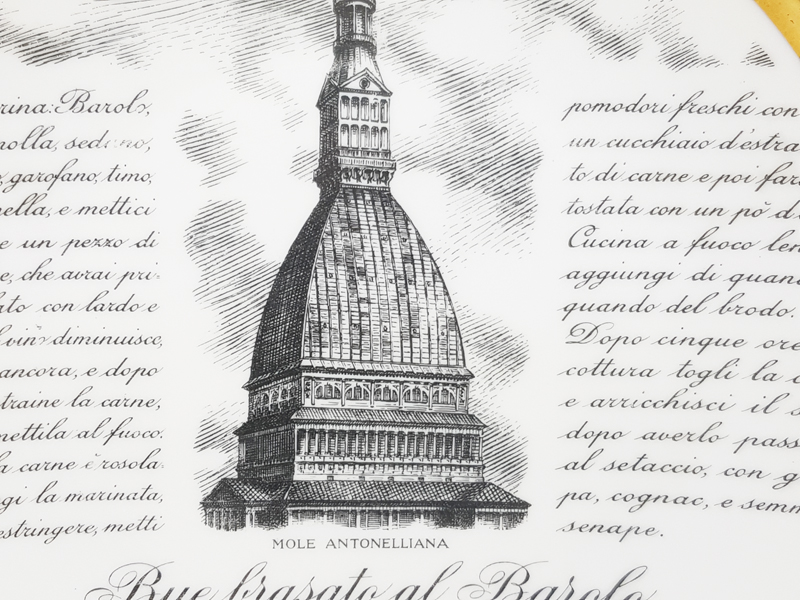 rina: Barolo,
nolla, sedano,
garofano, timo,
nella, e mettici
e un pezzo di
e, che avrai pri-
ato con lardo e
l vino diminuisce
ancora, e dopo
traine la carne,
mettila al fuoco.
a carne è rosola-
gi la marinata,
estringere, metti
pomodori freschi con
un cucchiaio d'estra
to di carne e poi far
tostata con un pò d
Cucina a fuoco len
aggiungi di quan
quando del brodo.
Dopo cinque ore
cottura togli la c
e arricchisci il s
dopo averlo pass
al setaccio, con g
pa, cognac, e sem
senape.
MOLE ANTONELLIANA
Bue brasato al Barolo